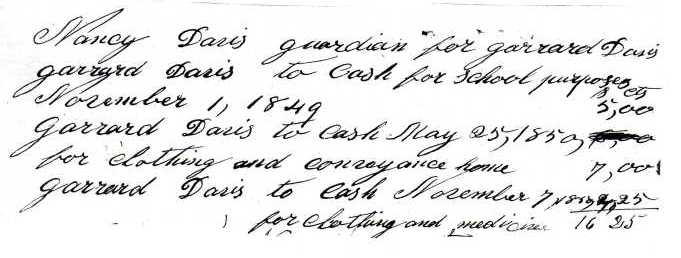 Nancy Davis guardian for Garrard Davis
Garrard Davis to Cash for School purposes $ cts
November 1, 1849 5,00
Garrard Davis to Cash May 25, 1850,
for clothing and conveyance home 7,00
Garrard Davis to Cash November 7, 25
for clothing and medicine 16 25